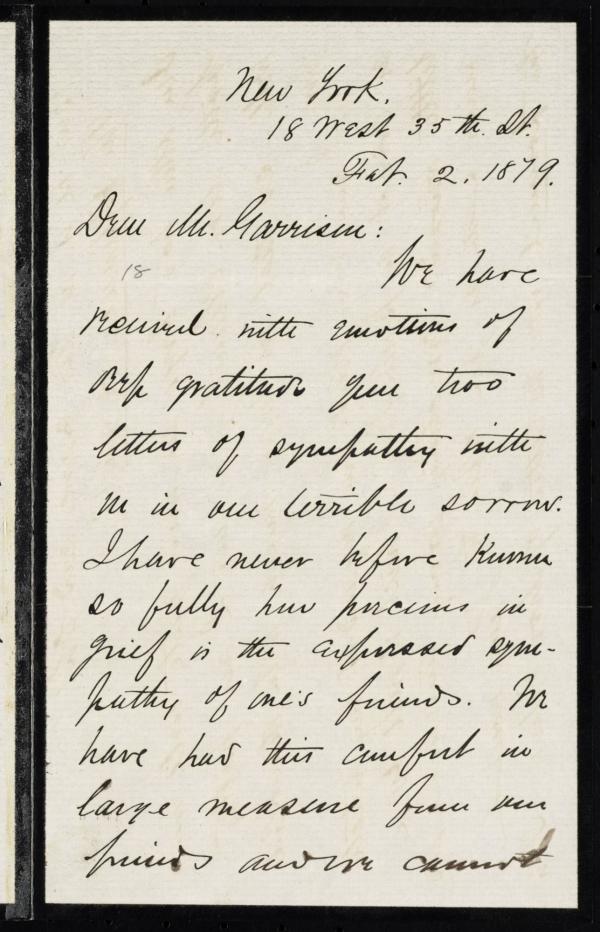 New York.
18 West 35th. St.
Feb. 2. 1879.
Dear Mr. Garrison:
18
We have
received with emotions of
deep gratitude your two
letters of sympathy with
us in our terrible sorrow.
I have never before known
so fully how precious in
grief is the expressed sym-
pathy of one's friends. We
have had this comfort in
large measure from our
friends and we cannot